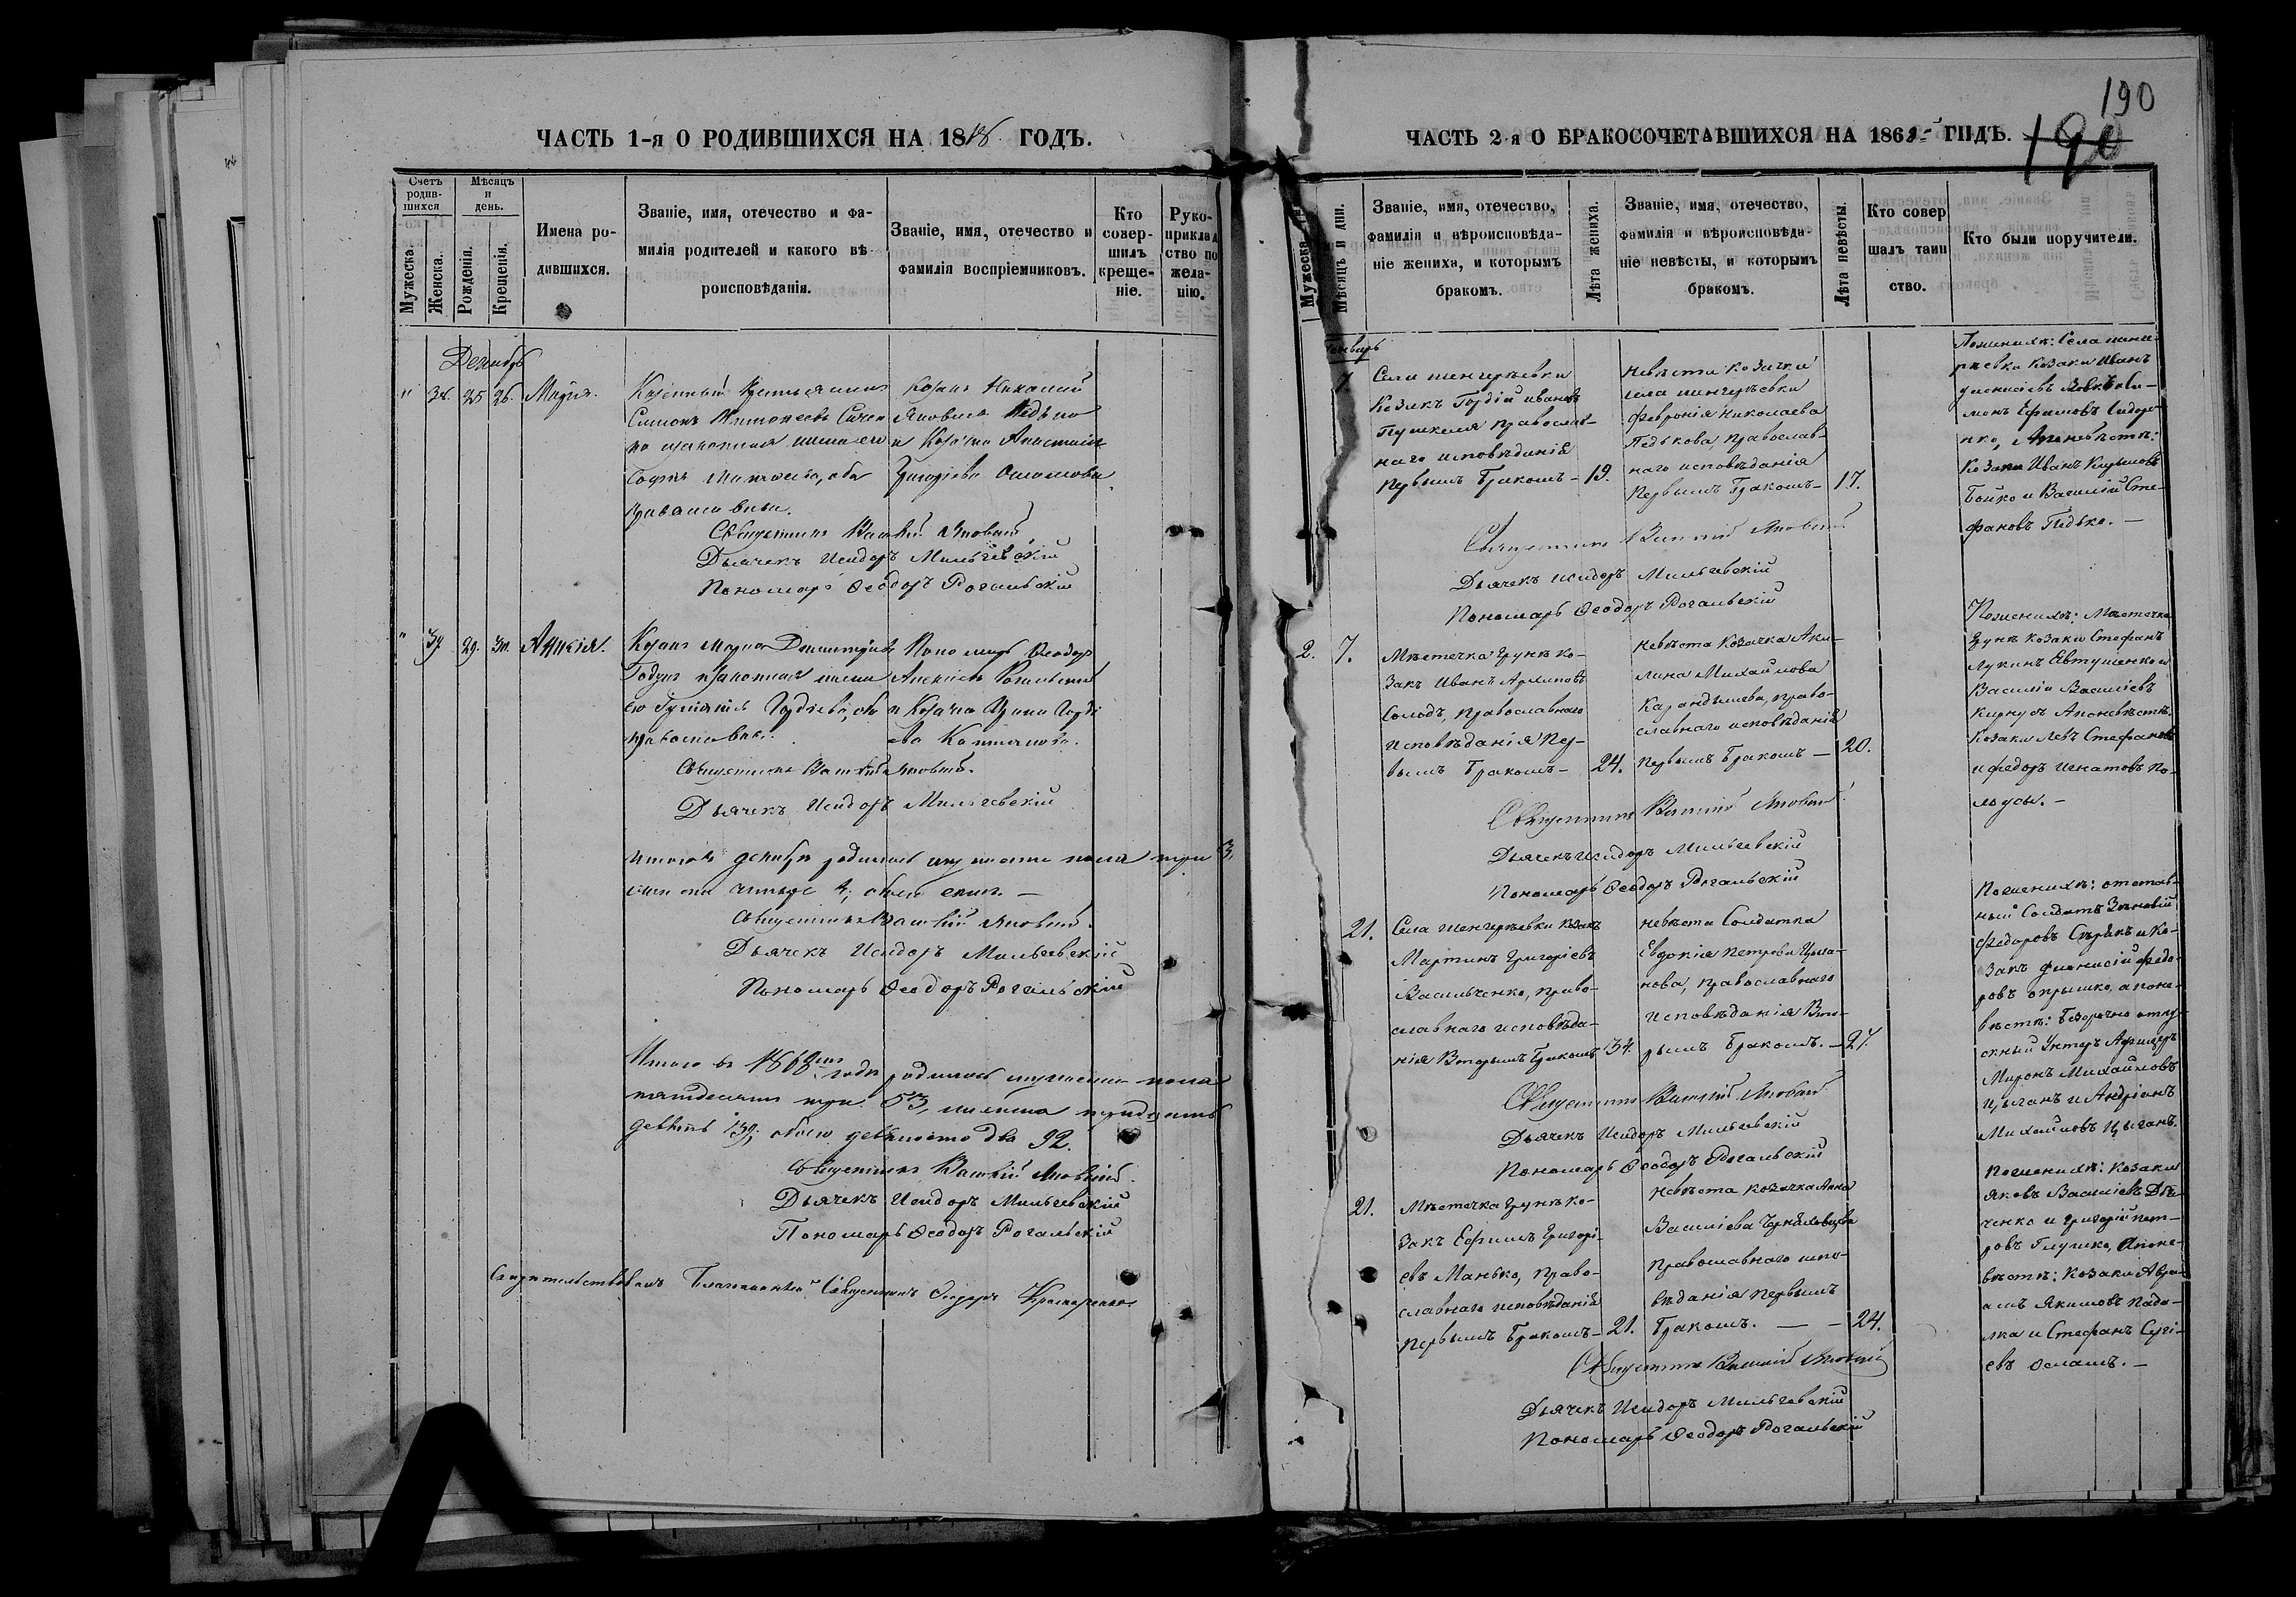 ЧАСТЬ 1-я О РОДИВШИХСЯ НА 1868 ГОДЪ.
Счетъ родив-шихся
Мужеска.
Женска.
Мѣсяцъ и день.
Рожденія.
Крещенія.
Имена ро-
дившихся.
Званіе, имя, отечество и фа-
милія родителей и какого вѣ
роисповѣданія.
Званіе, имя, отечество и
фамилія воспріемниковъ.
Кто
совер-
шилъ
креще-
ніе.
Руко-
приклад
ство по
жела-
нію.
Декабрь
" 38. 25 26. Марія.
Казенный Крестьянинъ
Симонъ
законная жена его
Софія оба
православны.
Козакъ Николай
Яковлевъ Педько
и Козачка Анастасія
Григоріева
Священникъ Яновскій
Дьячекъ Исидоръ Мильчевскій
Пономарь Ѳеодоръ Рогальскій
" 39. 29. 30. Анисія.
Козакъ Марко Димитріевъ
законная жена
его Гордіева, оба
православны.
Пономарь Ѳеодоръ
Алексіевъ Рогальскій
и Козачка Ирина Горді
ева
Священникъ Яновскій.
Дьячекъ Исидоръ Мильчевскій
Итого въ декабрѣ родилось мужеска пола три 3,
женска четыре 4, обоего семь. —
Священникъ Яновскій.
Дьячекъ Исидоръ Мильчевскій
Пономарь Ѳеодоръ Рогальскій
Итого въ 1868мъ годѣ родилось мужеска пола
пятдесятъ три 53, женска тридцать
девять 39; обоего девяносто два 92.
Священникъ Яновскій.
Дьячекъ Исидоръ Мильчевскій
Пономарь Ѳеодоръ Рогальскій
Свидѣтельствовалъ Благочинный Священникъ Ѳеодоръ
190
190
ЧАСТЬ 2-я О БРАКОСОЧЕТАВШИХСЯ НА 1868 ГОДЪ.
Мужеска
Мѣсяцъ и дни.
Званіе, имя, отечество,
фамилія и вѣроисповѣда-
ніе жениха, и которымъ
бракомъ.
Лѣта жениха.
Званіе, имя, отечество,
фамилія и вѣроисповѣда-
ніе невѣсты, и которымъ
бракомъ.
Лѣта невѣсты.
Кто совер
шалъ таин
ство.
Кто были поручители.
Генварь
7.
Села
Козакъ Гордій Ивановъ
православ-
наго исповѣданія
Первымъ Бракомъ – 19.
Невѣста козачка
села
Февронія Николаева
Педькова, православ-
наго исповѣданія
Первымъ Бракомъ – 17.
По женихѣ: Села
козаки Иванъ
монъ Ефимовъ Сидоре-
нко, А по невѣстѣ:
Козаки Иванъ
Бойко и Василій Сте-
фановъ Педько. —
Священникъ Яновскій
Дьячекъ Исидоръ Мильчевскій
Пономарь Ѳеодоръ Рогальскій
2. 7.
Мѣстечка Груни ко-
закъ Иванъ Архиповъ
Солодъ, православнаго
исповѣданія Пер-
вымъ Бракомъ – 24.
Невѣста Козачка Аку-
лина Михайлова
православнаго исповѣданія
Первымъ Бракомъ – 20.
По женихѣ: Мѣстечка
Груни козаки Стефанъ
Лукинъ Евтушенко и
Василій Василіевъ
А по невѣстѣ:
Козаки Левъ Стефановъ
и Федоръ Игнатовъ
Священникъ Яновскій
Дьячекъ Исидоръ Мильчевскій
Пономарь Ѳеодоръ Рогальскій
21.
Села козакъ
Мартинъ Григоріевъ
Васильченко, право-
славнаго исповѣда-
нія Вторымъ Бракомъ 34.
Невѣста Солдатка
Евдокія Петрова Цыга-
нова, православнаго
исповѣданія Вто-
рымъ Бракомъ. – 27.
По женихѣ: отстав-
ный Солдатъ Зѣновій
Федоровъ и Ко-
закъ Діонисій Федо-
ровъ а по не-
вѣстѣ: безсрочно отпу-
скный Унтеръ Афицеръ
Миронъ Михайловъ
Цыганъ и Андріанъ
Михайловъ Цыганъ.
Священникъ Яновскій
Дьячекъ Исидоръ Мильчевскій
Пономарь Ѳеодоръ Рогальскій
21.
Мѣстечка Груни ко-
закъ Ефимъ Григорі-
евъ Манько, право-
славнаго исповѣданія
Первымъ Бракомъ – 21.
Невѣста козачка Анна
Василіева
Православнаго испо-
вѣданія Первымъ
Бракомъ. — – 24.
По женихѣ: козаки
Яковъ Василіевъ
и Григорій Пет-
ровъ Глушко, А по не-
вѣстѣ: Козаки Авра-
амъ Якимовъ
и Стефанъ Сергі-
евъ
Священникъ Яновскій
Дьячекъ Исидоръ Мильчевскій
Пономарь Ѳеодоръ Рогальскій